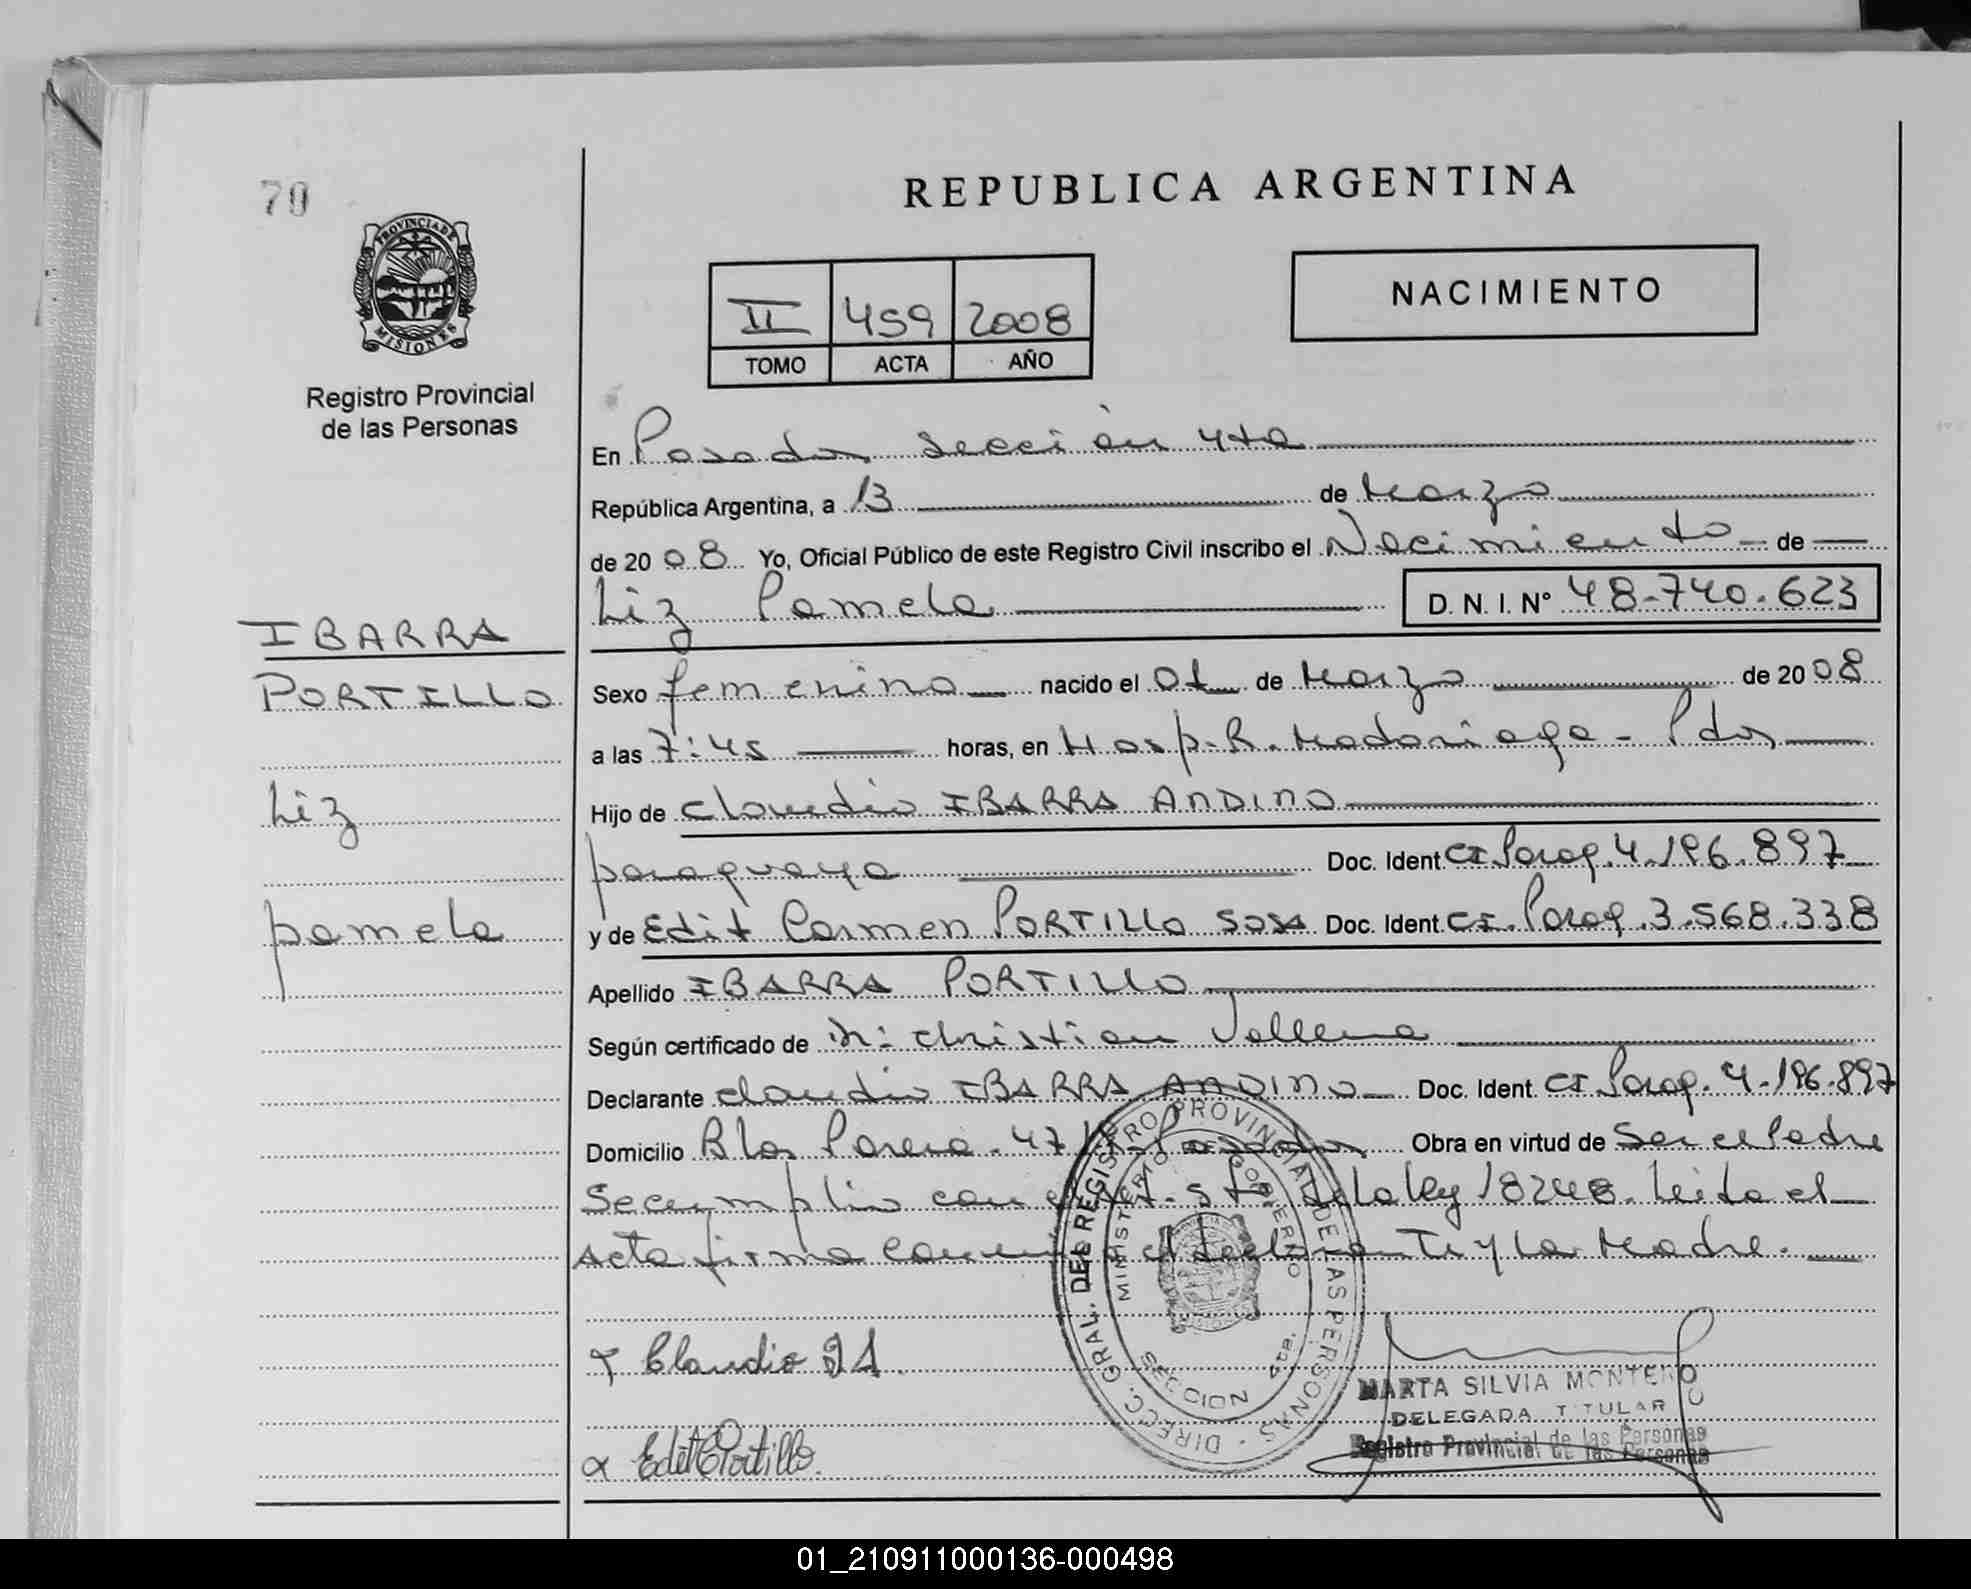 70
REPUBLICA ARGENTINA
PROVINCIA DE MISIONES
Registro Provincial
de las Personas
II 459 2008
TOMO ACTA AÑO
NACIMIENTO
En Posadas sección 4ta
República Argentina, a 13 de Marzo
de 2008 Yo, Oficial Público de este Registro Civil inscribo el Nacimiento de
Liz Pamela D. N. I. N° 48.740.623
IBARRA
PORTILLO
Liz
pamela
Sexo femenino nacido el 01 de Marzo de 2008
a las 7:45 horas, en Hosp. R. Madariaga - Pdas
Hijo de Claudio IBARRA ANDINO
paraguaya Doc. Ident. CI. Parag. 4.196.897
y de Edit Carmen PORTILLO SOSA Doc. Ident. CI. Parag. 3.568.338
Apellido IBARRA PORTILLO
Según certificado de Christian
Declarante Claudio IBARRA ANDINO Doc. Ident. CI Parag. 4.196.897
Domicilio Blas Parera Posadas Obra en virtud de Ser el Padre
Se cumplio con el Art. 5to de la ley 18248. Leida el
Acta firma conmigo el declarante y la Madre.
Claudio
Edit Portillo
DIRECC. GRAL. DEL REGISTRO PROVINCIAL DE LAS PERSONAS
MINISTERIO DE GOBIERNO
SECCION 4ta.
MARTA SILVIA MONTERO
DELEGADA TITULAR
Registro Provincial de las Personas
01_210911000136-000498